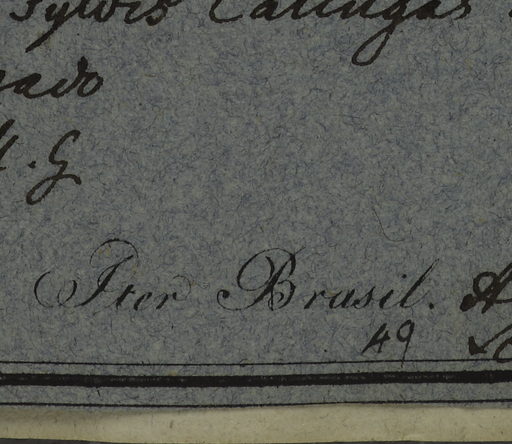 Sylvis Catingas
ado
. G
Iter Brasil. A
49